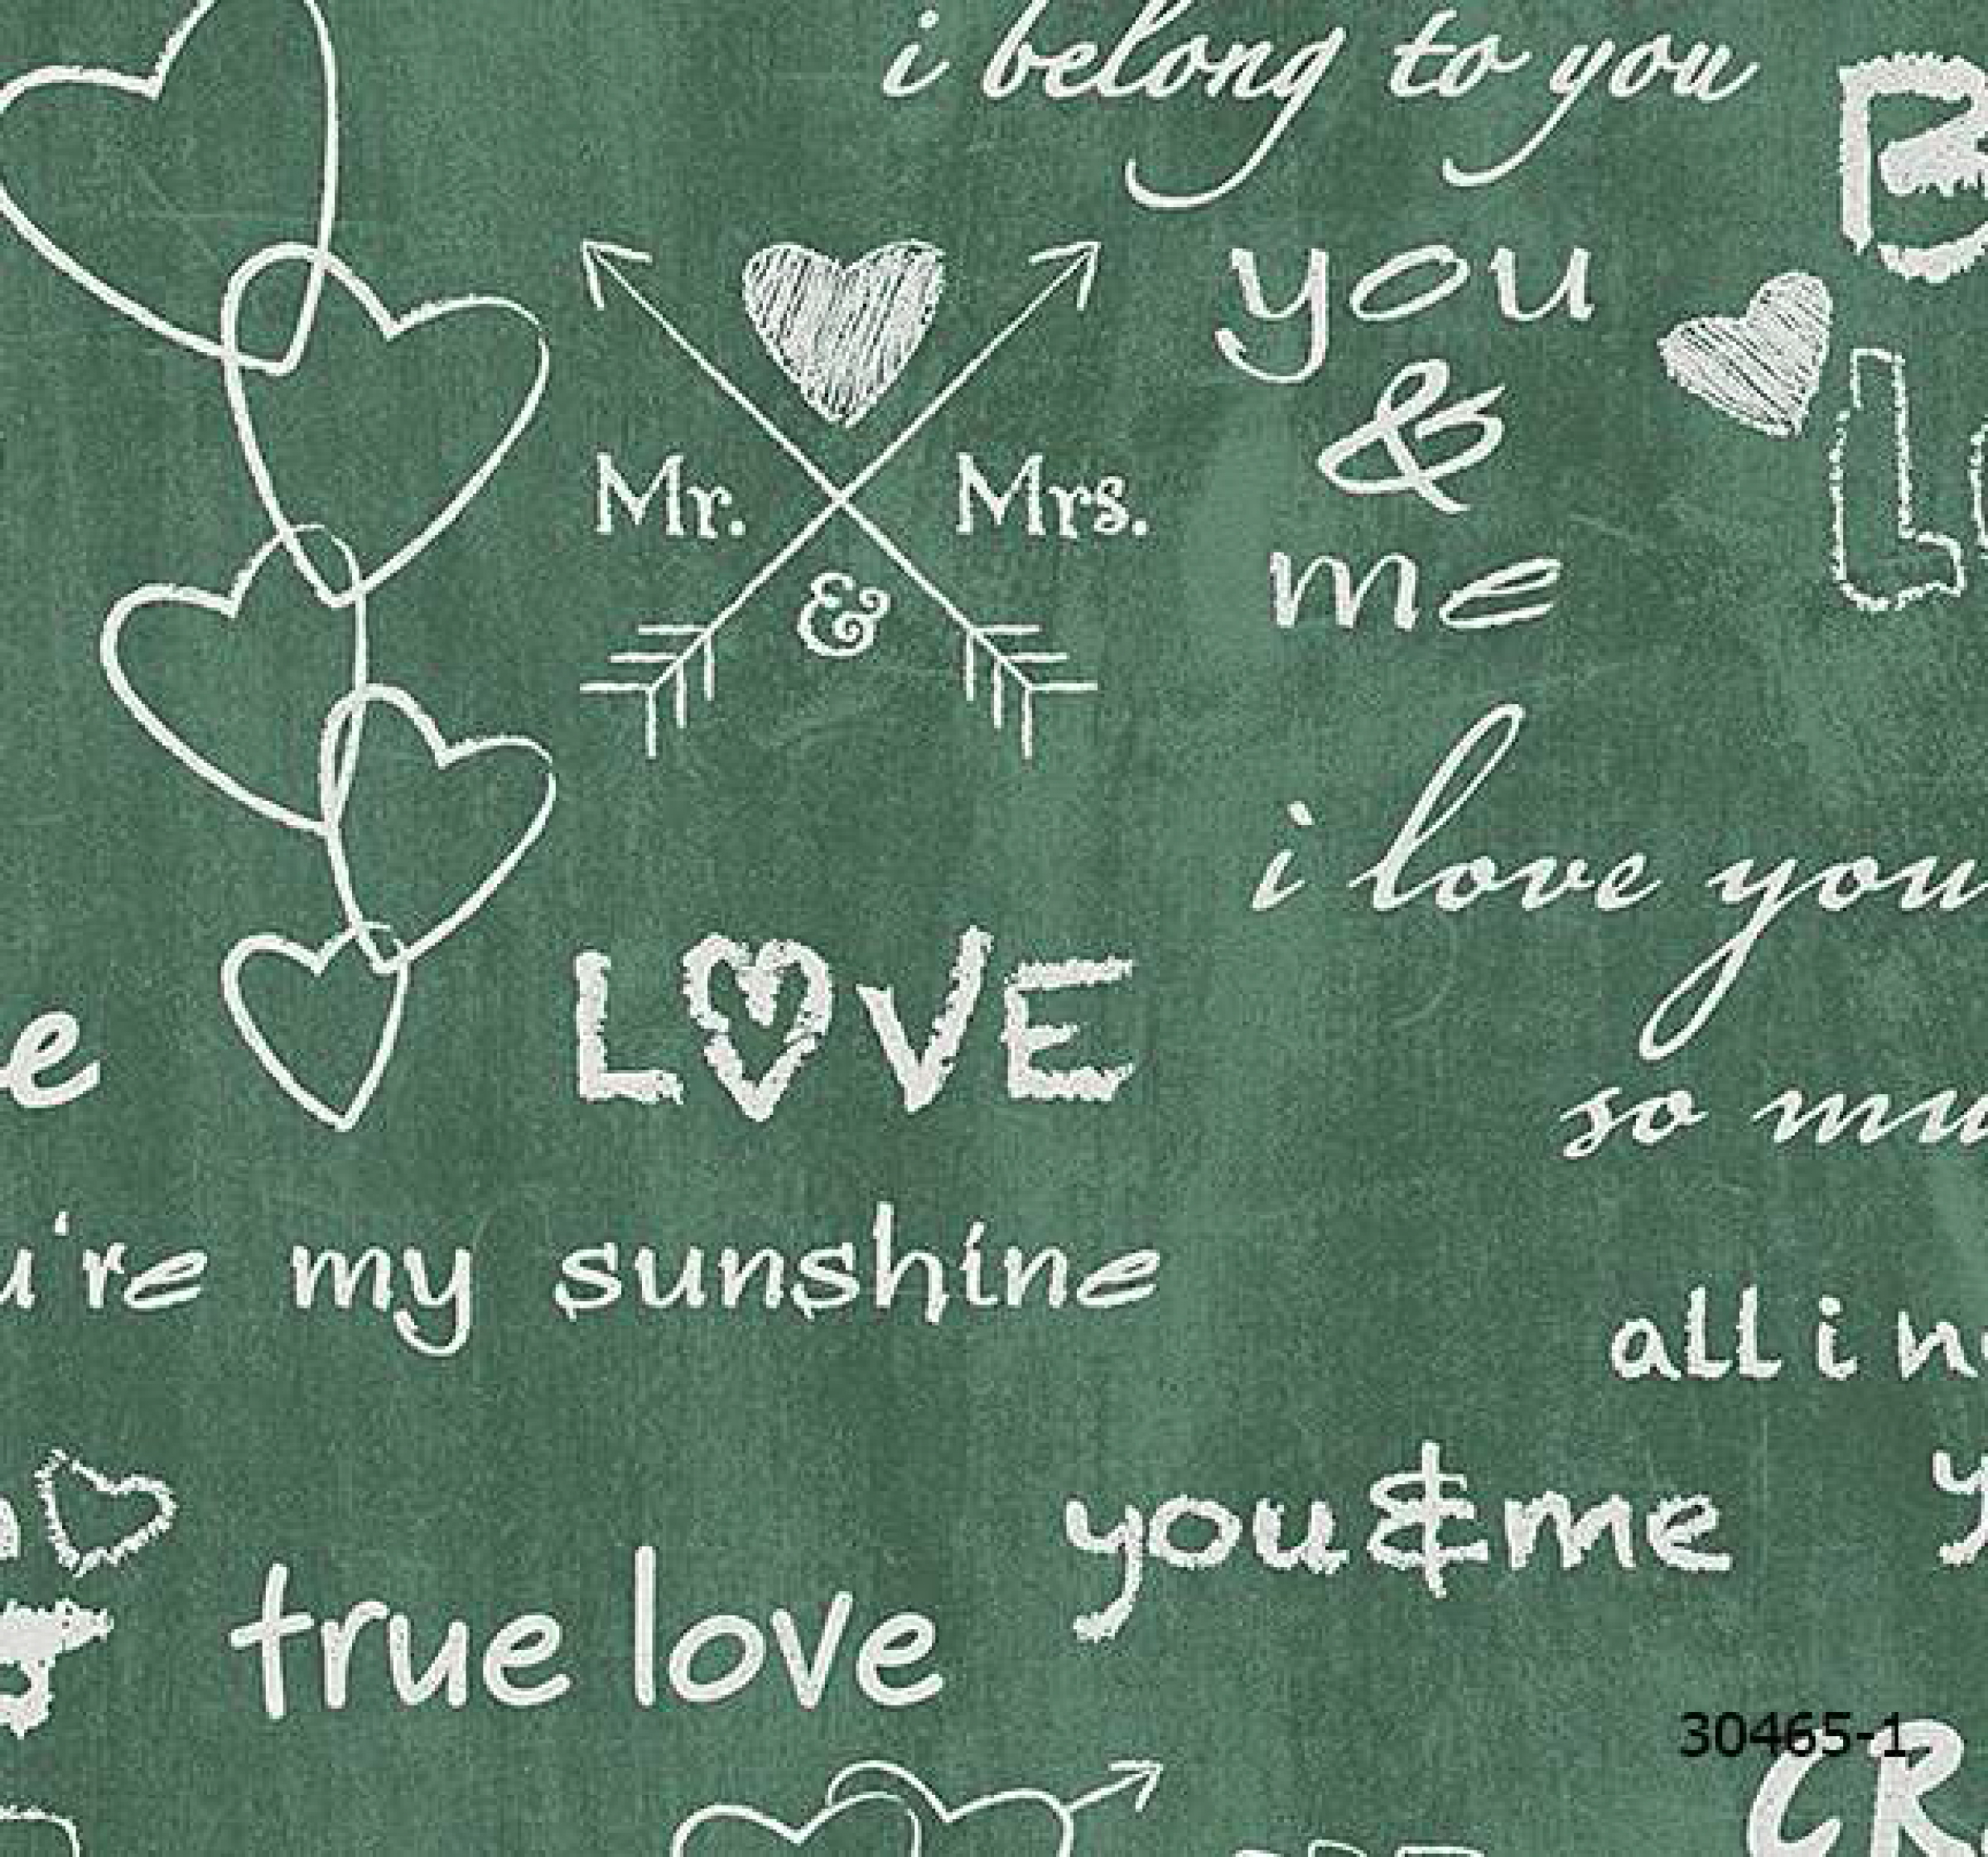 i belong to you
B
you
&
me
Mr. Mrs.
&
i love you
LOVE
e
so mu
u're my sunshine
all i n
you&me
y
true love
30465-1
CR